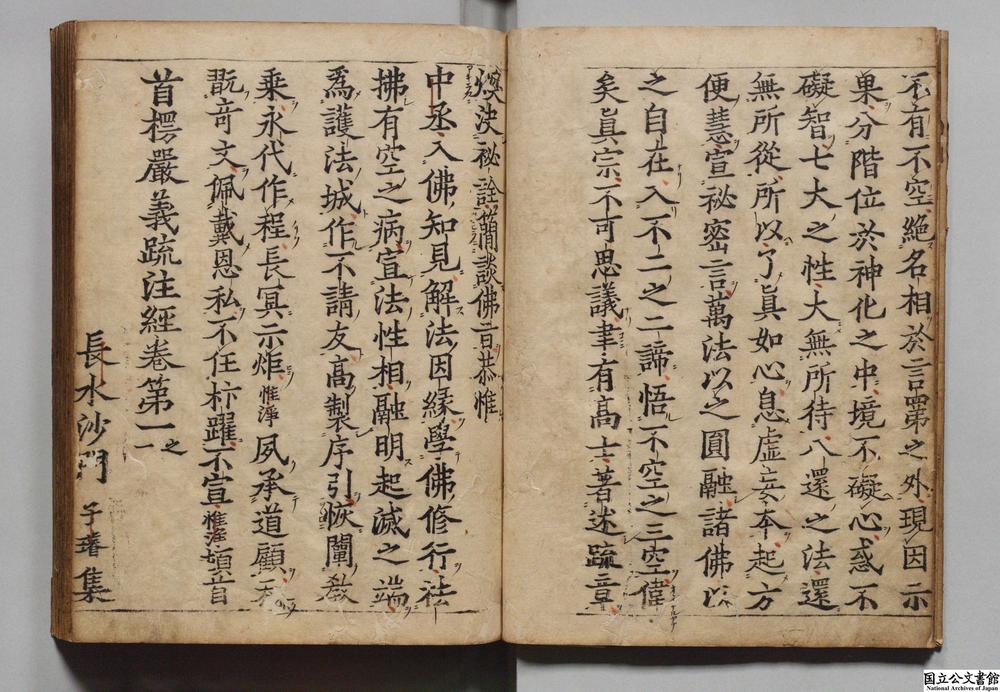 不有不空絶名相於言第之外現因示
果分階位於神化之中境不礙心惑不
礙智七大之性大無所待八還之法還
無所從所以了眞如心息虚妄本起方
便慧宣祕密言萬法以之圓融諸佛以
之自在入不二之二諦悟不空之三空偉
矣眞宗不可思議聿有高士著述疏章
決祕詮簡談佛旨恭惟
中丞入佛知見解法因緣學佛修行祛
拂有空之病宣法性相融明起滅之端
爲護法城作不請友高製序引恢闡教
乘永代作程長冥示炬惟淨夙承道顧
翫奇文佩戴恩私不任抃躍不宣惟淨頓首
首楞嚴義疏注經卷第一之一
長水沙門子璿集
国立公文書館
National Archives of Japan